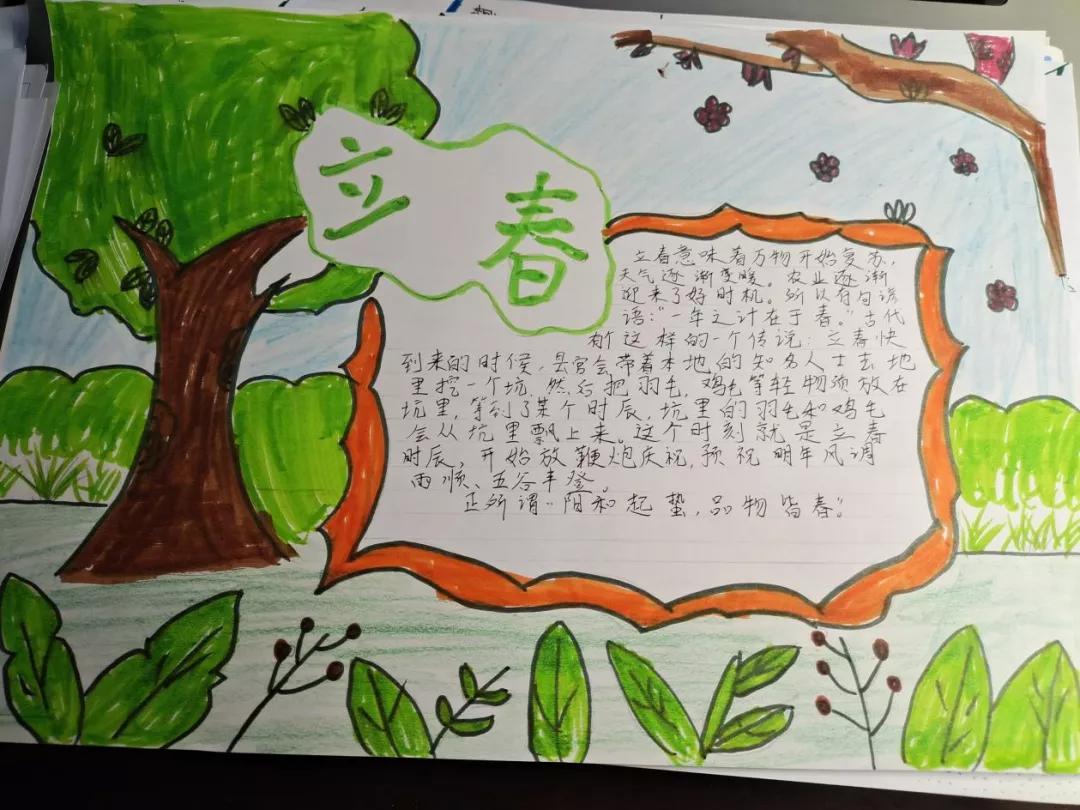 立春
立春意味着万物开始复苏，
天气逐渐变暖。农业逐渐
迎来了好时机。所以有句谚
语:“一年之计在于春。”古代
有个这样的一个传说：立春快
到来的时候，县官会带着本地的知名人士去地
里挖一个坑，然后把羽毛，鸡毛等轻物质放在
坑里，等到了某个时辰，坑里的羽毛和鸡毛
会从坑里飘上来。这个时刻就是立春
时辰，开始放鞭炮庆祝，预祝明年风调
雨顺、五谷丰登。
正所谓“阳和起蛰，品物皆春”。